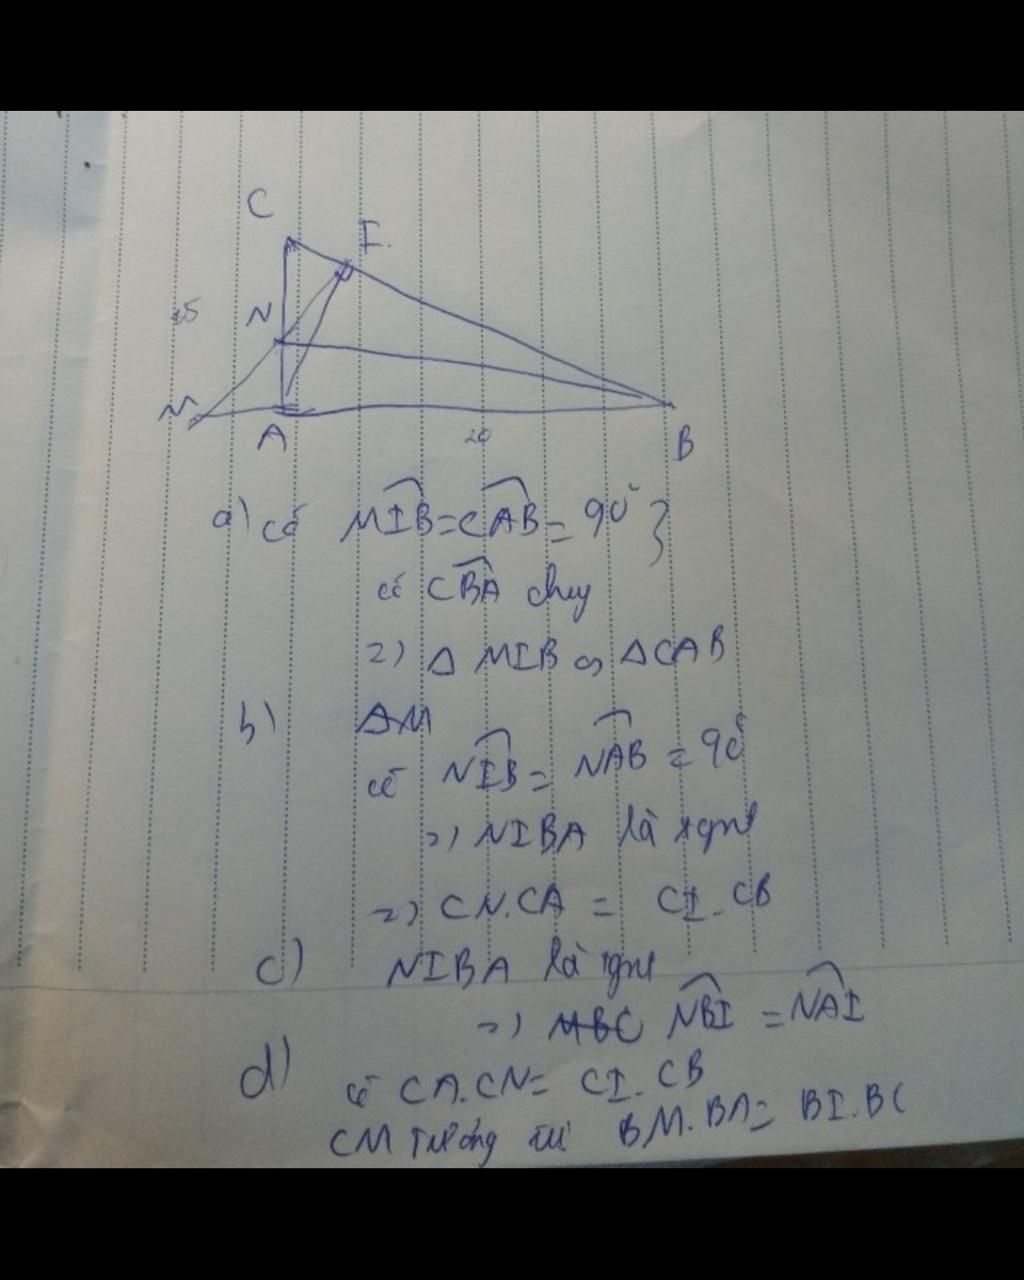 C
I.
N
M
A
20
B
a) có MIB = CAB = 90° }
có CBA
=) Δ MIB ∽ ΔCAB
b)
có NIB = NAB = 90°
=) NIBA là tgnt
=) CN.CA = CI.CB
c) NIBA là tgnt
=) NBI = NAI
d) có CA.CN = CI.CB
CM tương tự BM.BA = BI.BC